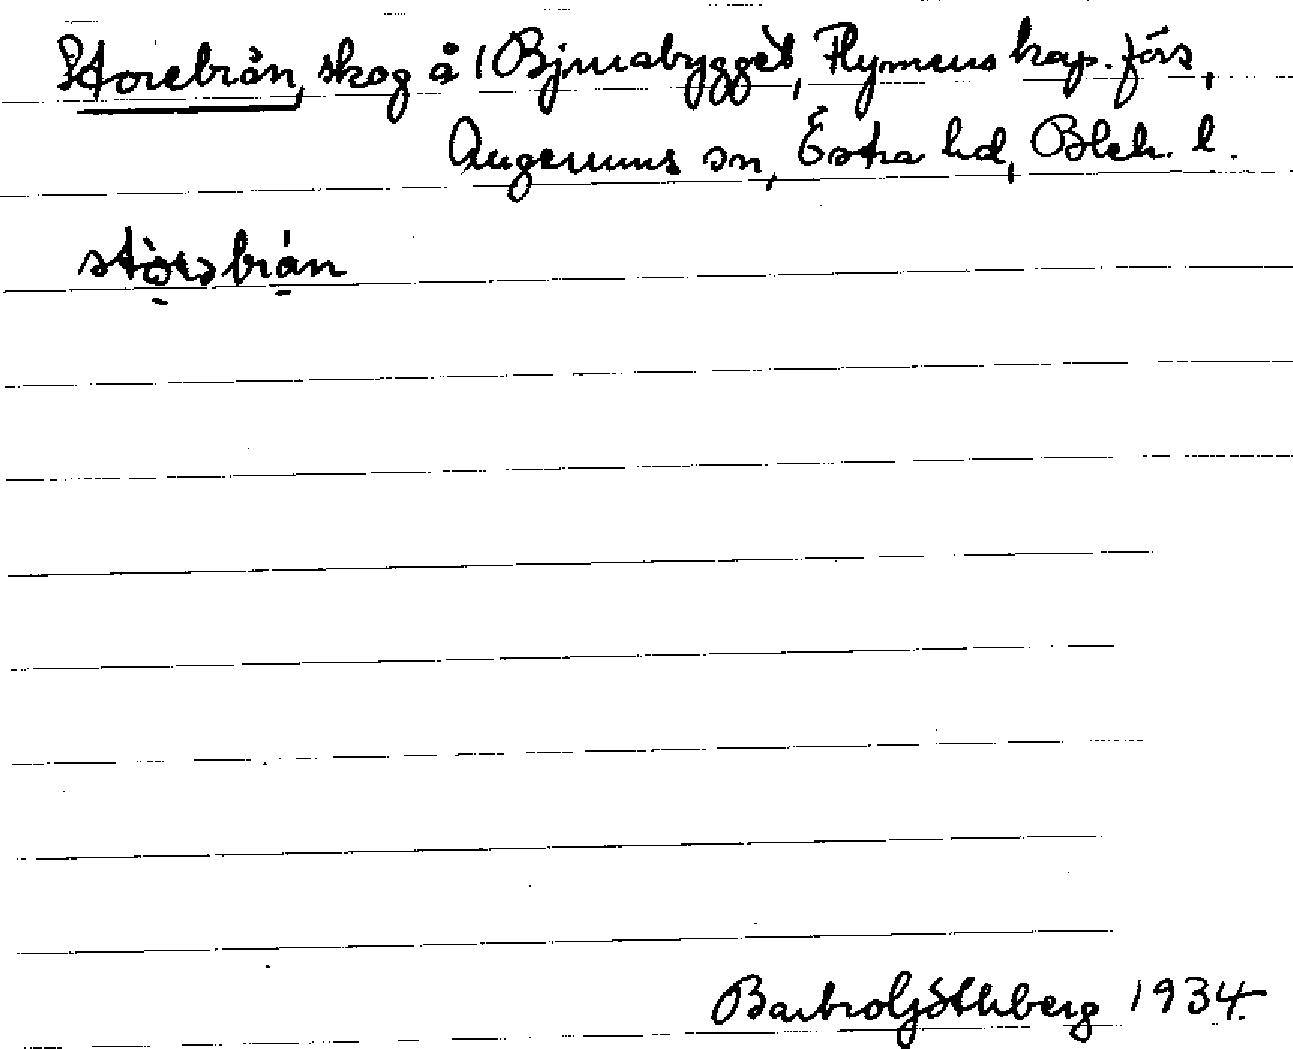 Storebrån, skog å 1 Bjurabygget, Flymens kap. förs,
Augerums sn, Östra hd, Blek. l.
stòrəbrán
Barbro Göthberg 1934.